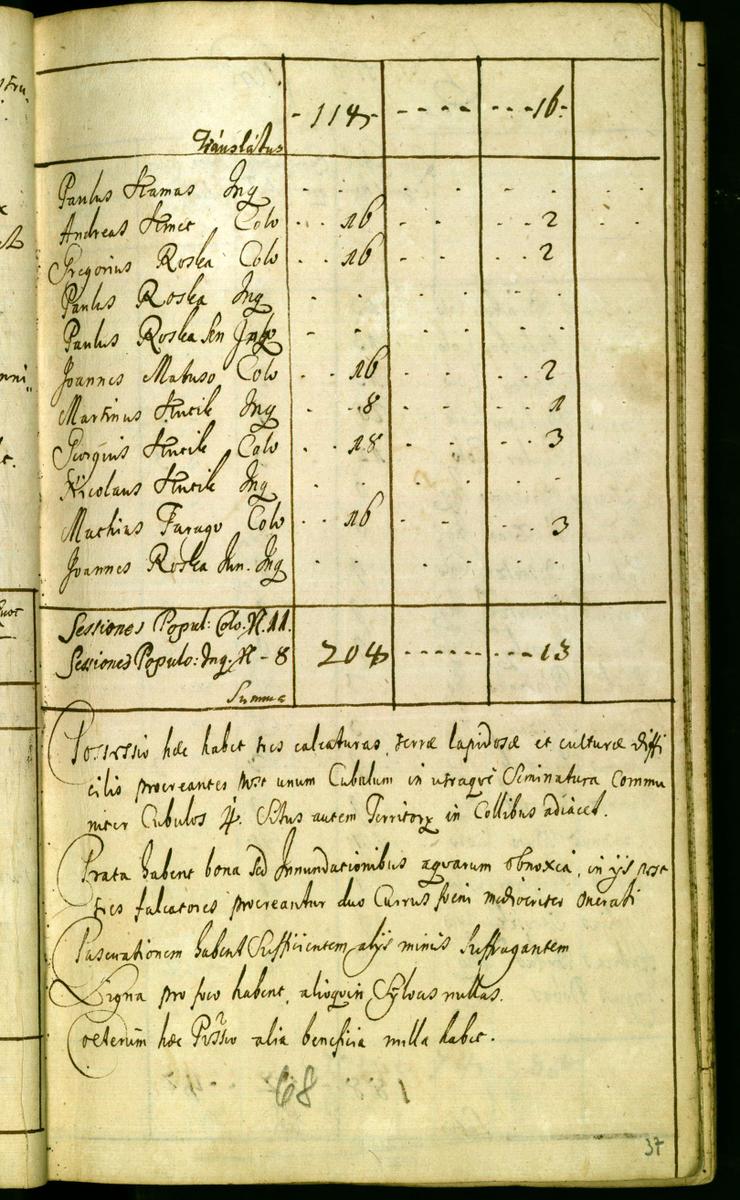 Translatus - 114 - - - - - - - - 16 -
Paulus Hamas Inq
Andreas Hmet Colo 16 2
Gregorius Roska Colo 16 2
Paulus Roska Inq
Paulus Roska Sen Inq
Joannes Matuso Colo 16 2
Martinus Hucik Inq 8 1
Georgius Hucik Colo 18 3
Nicolaus Hucik Inq
Mathias Farago Colo 16 3
Joannes Roska Jun. Inq
Sessiones Popul: Colo. N. 11.
Sessiones Populo: Inq. N - 8 204 - - - - - - - - - 13
Summa
Possessio hæc habet tres calcaturas, terræ lapidosæ et culturæ diffi
cilis procreantes post unum Cubulum in utraque Seminatura Commu
niter Cubulos 4. Situs autem Territory in Collibus adiacet.
Prata habent bona sed Innundationibus aquarum obnoxia, in ijs post
tres falcatores procreantur duo Currus foeni mediocriter onerati
Pascuationem habent Sufficientem alijs minus Suffragantem
Ligna pro foco habent, alioquin Sylvas nullas.
Coeterum hæc Possio alia beneficia nulla habet.
68
37